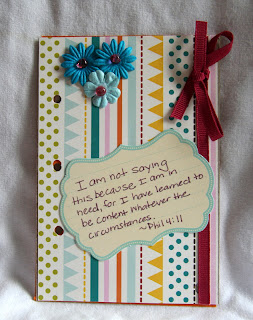 I am not saying
this because I am in
need, for I have learned to
be content whatever the
circumstances.
~Phil 4:11